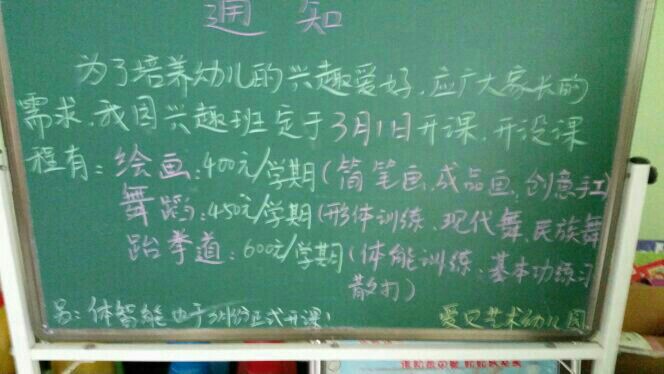 通知
为了培养幼儿的兴趣爱好,应广大家长的
需求,我园兴趣班定于3月1日开课,开设课
程有:绘画:400元/学期(简笔画、成品画、创意手工)
舞蹈:450元/学期(形体训练、现代舞、民族舞
跆拳道:600元/学期(体能训练、基本功练习
散打)
另:体智能也于3月份正式开课!
艺术幼儿园